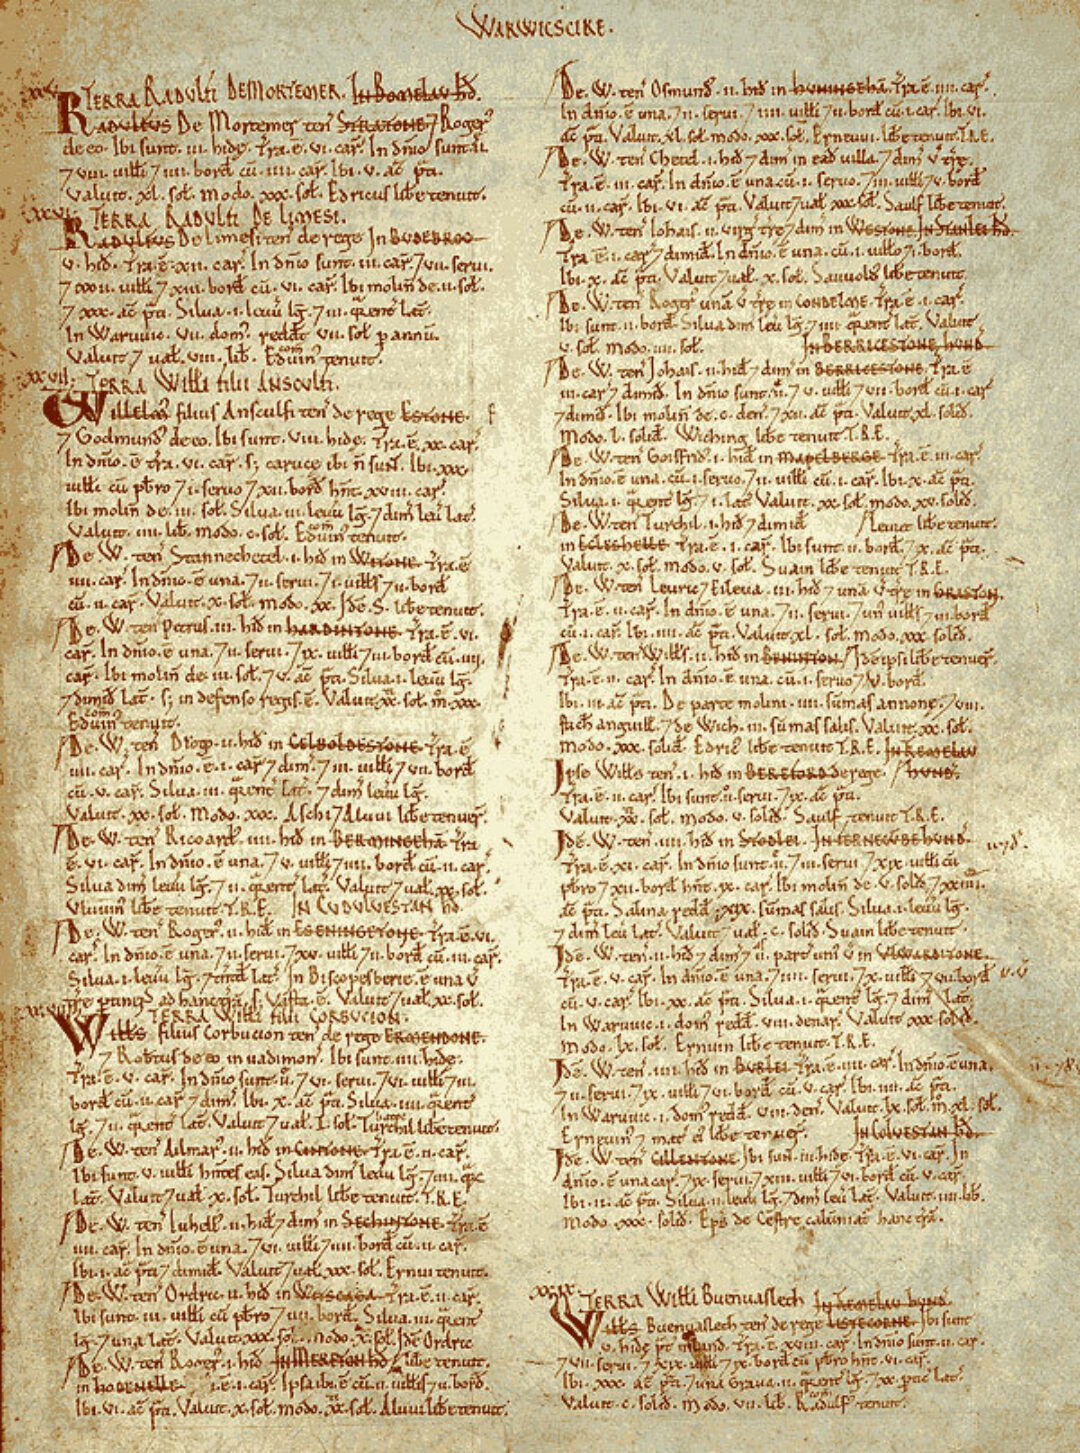 WARWICSCIRE.
TERRA RADULFI DE MORTEMER. In Bomelau hđ.
RADULFUS De Mortemer teñ STRATONE 7 Roger
de eo. Ibi sunt .iii. hide. Tra.ē.vi. car̃. In dñio sunt .ii.
7 viii. uilli 7 iiii. borđ cū .iiii. car̃. Ibi .v. ac̃ p̃ti.
Valuit .xl. sol. modo .xxx. sol. Edricus libe tenuit.
TERRA RADULFI DE LIMESI.
RADULFUS De limesi teñ de rege In BUDEBROC
.v. hiđ. Tra.ē.xii. car̃. In dñio sunt .iii. car̃. 7 vii. serui.
7 xxii. uilli 7 xiii. borđ cū .vi. car̃. Ibi moliñ de .ii. sol.
7 xxx. ac̃ p̃ti. Silua .i. leuu lḡ. 7 iii. q̃rent lat̃.
In Waruuic .vii. dom' redđt .vii. sol p annū.
Valuit 7 ual .viii. lib. Eduin com tenuit.
.xxvii. TERRA Willi filii Ansculfi.
Willelm filius Ansculfi teñ de rege ESTONE.
7 Godmunđ de eo. Ibi sunt .viii. hide. Tra.ē.xx. car̃.
In dñio.ē.tra .vi. car̃. s; caruce ibi ñ suñt. Ibi .xxx.
uilli cū pbro 7 i. seruo 7 xii. borđ hñt .xviii. car̃.
Ibi moliñ de .iii. sol. Silua .iii. leuu lḡ. 7 dim leu lat̃.
Valuit .iiii. lib. modo .c. sol. Eduin com tenuit.
De .W. teñ Stannechetel .i. hiđ in WITONE. Tra.ē
.iiii. car̃. In dñio.ē.una. 7 ii. serui. 7 i. uills 7 ii. borđ
cū .ii. car̃. Valuit .x. sol. modo .xx. Idē .S. libe tenuit.
De .W. teñ Petrus .iii. hiđ in HARDINTONE. Tra.ē.vi.
car̃. In dñio.ē.una. 7 ii. serui. 7 ix. uilli 7 iii. borđ cū .iiii.
car̃. Ibi moliñ de .iii. sol. 7 v. ac̃ p̃ti. Silua .i. leuu lḡ.
7 dimiđ lat̃. s; in defenso regis.ē. Valuit .xx. sol. m̃ .xxx.
Eduin com tenuit.
De .W. teñ Drogo .ii. hiđ in CELBOLDESTONE. Tra.ē
.iiii. car̃. In dñio.ē.i. car̃ 7 dim. 7 iii. uilli 7 vii. borđ
cū .v. car̃. Silua .iii. q̃rent lat̃. 7 dim leuu lḡ.
Valuit .xx. sol. Modo .xxx. Aschi 7 Aluui libe tenueř.
De .W. teñ Ricoard .iiii. hiđ in BERMINGEHĀ. Tra
.ē.vi. car̃. In dñio.ē.una. 7 v. uilli 7 iiii. borđ cū .ii. car̃.
Silua dim leuu lḡ. 7 ii. q̃rent lat̃. Valuit 7 ual .xx. sol.
Vluuin' libe tenuit .T.R.E. IN CUDULVESTAN hđ.
De .W. teñ Roger .ii. hiđ in ESENINGETONE. Tra.ē.vi.
car̃. In dñio.ē.una. 7 ii. serui. 7 xv. uilli 7 ii. borđ cū .iii. car̃.
Silua .i. leuu lḡ. 7 tntđ lat̃. In Biscopesberie.ē.una v̄
t̃re ptineñs ad hanc t̃rā. s; Vasta.ē. Valuit 7 ual .xx. sol.
TERRA Willi filii CORBUCION.
Wills filius Corbucion teñ de rege ERMENDONE.
7 Robtus de eo in uadimon. Ibi sunt .iiii. hide.
Tra.ē.v. car̃. In dñio sunt .ii. 7 vi. serui. 7 vi. uilli 7 iii.
borđ cū .ii. car̃ 7 dim. Ibi .x. ac̃ p̃ti. Silua .iiii. q̃rent
lḡ. 7 ii. q̃rent lat̃. Valuit 7 ual .L. sol. Turchil libe tenuit.
De .W. teñ Ailmar .ii. hiđ in CINTONE. Tra.ē.ii. car̃.
Ibi sunt .v. uilli hñtes eas. Silua dim leuu lḡ. 7 iiii. q̃z
lat̃. Valuit 7 ual .x. sol. Turchil libe tenuit .T.R.E.
De .W. teñ Iuhell .ii. hiđ 7 dim in SECHINTONE. Tra.ē
.iiii. car̃. In dñio.ē.una. 7 vi. uilli 7 iiii. borđ cū .ii. car̃.
Ibi .i. ac̃ p̃ti 7 dimiđ. Valuit 7 ual .xxx. sol. Ernui tenuit.
De .W. teñ Ordric .ii. hiđ in Tra.ē.ii. car̃.
Ibi sunt .iii. uilli cū pbro 7 iiii. borđ. Silua .iii. q̃rent
lḡ. 7 una lat̃. Valuit .xxx. sol. modo .x. sol. Idē Ordric
De .W. teñ Roger .i. hiđ IN MERETON hđ. libe tenuit.
in HODENELLE .i.ē.i. car̃. Ipsa ibi.ē.cū .ii. uillis 7 ii. borđ.
Ibi .vi. ac̃ p̃ti. Valuit .x. sol. modo .xx. sol. Aluui libe tenuit.
De .W. teñ Osmund .ii. hiđ in HUNINGEHĀ. Tra.ē.iiii. car̃.
In dñio.ē.una. 7 ii. serui. 7 iiii. uilli 7 ii. borđ cū .i. car̃. Ibi .vi.
ac̃ p̃ti. Valuit .xl. sol. modo .xxx. sol. Ernuui libe tenuit .T.R.E.
De .W. teñ Chetel .i. hiđ 7 dim in eađ uilla. 7 dim v̄ t̃re.
Tra.ē.iii. car̃. In dñio.ē.una cū .i. seruo. 7 iii. uilli 7 v. borđ
cū .ii. car̃. Ibi .vi. ac̃ p̃ti. Valuit 7 ual .xxx. sol. Saulf libe tenuit.
De .W. teñ Iohais .ii. uirg t̃re 7 dim in WESTONE. IN STANLEI hđ.
Tra.ē.i. car̃ 7 dimiđ. In dñio.ē.una. cū .i. uillo 7 i. borđ.
Ibi .x. ac̃ p̃ti. Valuit 7 ual .x. sol. Sauuold libe tenuit.
De .W. teñ Roger unā v̄ t̃re in CONDELME. Tra.ē.i. car̃.
Ibi sunt .ii. borđ. Silua dim leu lḡ. 7 iiii. q̃rent lat̃. Valuit
.v. sol. modo .iiii. sol. IN BERRICESTONE HUND.
De .W. teñ Iohais .ii. hiđ 7 dim in BERRICESTONE. Tra.ē
.iii. car̃ 7 dimiđ. In dñio sunt .ii. 7 v. uilli 7 vii. borđ cū .i. car̃
7 dimiđ. Ibi moliñ de .c. den. 7 xii. ac̃ p̃ti. Valuit .xl. soliđ.
Modo .l. soliđ. Wiching libe tenuit .T.R.E.
De .W. teñ Goiffriđ .i. hiđ in MAPELBERGE. Tra.ē.iii. car̃.
In dñio.ē.una. cū .i. seruo. 7 ii. uilli cū .i. car̃. Ibi .x. ac̃ p̃ti.
Silua .i. q̃rent lḡ. 7 i. lat̃. Valuit .xx. sol. modo .xv. soliđ.
De .W. teñ Turchil .i. hiđ 7 dimiđ Leuiet libe tenuit.
in ECLESHELLE. Tra.ē.i. car̃. Ibi sunt .ii. borđ. 7 x. ac̃ p̃ti.
Valuit .x. sol. modo .v. sol. Suain libe tenuit .T.R.E.
De .W. teñ Leuric 7 Eileua .iii. hiđ 7 unā v̄ t̃re in GRASTONE.
Tra.ē.ii. car̃. In dñio.ē.una. 7 ii. serui. 7 un uills 7 iii. borđ
cū .i. car̃. Ibi .iiii. ac̃ p̃ti. Valuit .xl. sol. modo .xxx. soliđ.
De .W. teñ Wills .ii. hiđ in BENINTON. Idē ipsi libe tenueř.
Tra.ē.ii. car̃. In dñio.ē.una. cū .i. seruo 7 v. borđ.
Ibi .iii. ac̃ p̃ti. De parte molini .iiii. sūmas annone. 7 viii.
stich anguill. 7 de Wich .iii. sūmas salis. Valuit .xx. sol.
Modo .xxx. soliđ. Edric' libe tenuit .T.R.E. IN REMELAU
Ipse Wills teñ .i. hiđ in BEREFORD de rege. HUND.
Tra.ē.ii. car̃. Ibi sunt .ii. serui. 7 ix. ac̃ p̃ti.
Valuit .xx. sol. modo .v. soliđ. Saulf tenuit .T.R.E.
Idē .W. teñ .iiii. hiđ in STODLEI. IN FERNECUBE HUND.
Tra.ē.xi. car̃. In dñio sunt .ii. 7 iii. serui 7 xix. uilli cū
pbro 7 xii. borđ hñt .ix. car̃. Ibi moliñ de .v. soliđ. 7 xxiiii.
ac̃ p̃ti. Salina redđ .xix. sūmas salis. Silua .i. leuu lḡ.
7 dim leu lat̃. Valuit 7 ual .c. soliđ. Suain libe tenuit.
Idē .W. teñ .ii. hiđ 7 dim 7 .ii. part uni' v̄ in VLWARDITONE.
Tra.ē.v. car̃. In dñio.ē.una. 7 iiii. serui. 7 x. uilli 7 vii. borđ
cū .v. car̃. Ibi .xx. ac̃ p̃ti. Silua .i. q̃rent lḡ. 7 dim lat̃.
In Waruuic .i. dom' redđ .viii. denar. Valuit .xxx. soliđ.
Modo .lx. sol. Ernuin libe tenuit .T.R.E.
Idē .W. teñ .iii. hiđ in BURLEI. Tra.ē.iiii. car̃. In dñio.ē.una.
7 ii. serui. 7 ix. uilli 7 vi. borđ cū .v. car̃. Ibi .iiii. ac̃ p̃ti.
In Waruuic .i. dom' redđ .viii. den. Valuit .lx. sol. m̃ .xl. sol.
Ernuuin 7 mat' ei' libe tenueř. IN COLVESTAN hđ.
Idē .W. teñ CILLENTONE. Ibi suñt .iii. hide. Tra.ē.vi. car̃. In
dñio.ē.una car̃. 7 ix. serui. 7 xiii. uilli 7 vi. borđ cū .v. car̃.
Ibi .ii. ac̃ p̃ti. Silua .ii. leuu lḡ. 7 dim leu lat̃. Valuit .iiii. lib.
Modo .xxx. soliđ. Eps de Cestre calūniat̃ hanc t̃rā.
.xxix. TERRA Willi Buenuaslech In REMELAU HUND.
Wills Buenuaslech teñ de rege LISTECORNE. Ibi sunt
.v. hide Tra.ē.xviii. car̃. In dñio sunt .ii. car̃.
7 vii. serui. 7 xix. uilli 7 ix. borđ cū pbro hñt .vi. car̃.
Ibi .xxx. ac̃ p̃ti. 7 una Graua .ii. q̃rent lḡ. 7 xx. ptic lat̃.
Valuit .c. soliđ. Modo .vii. lib. Radulf' com tenuit.